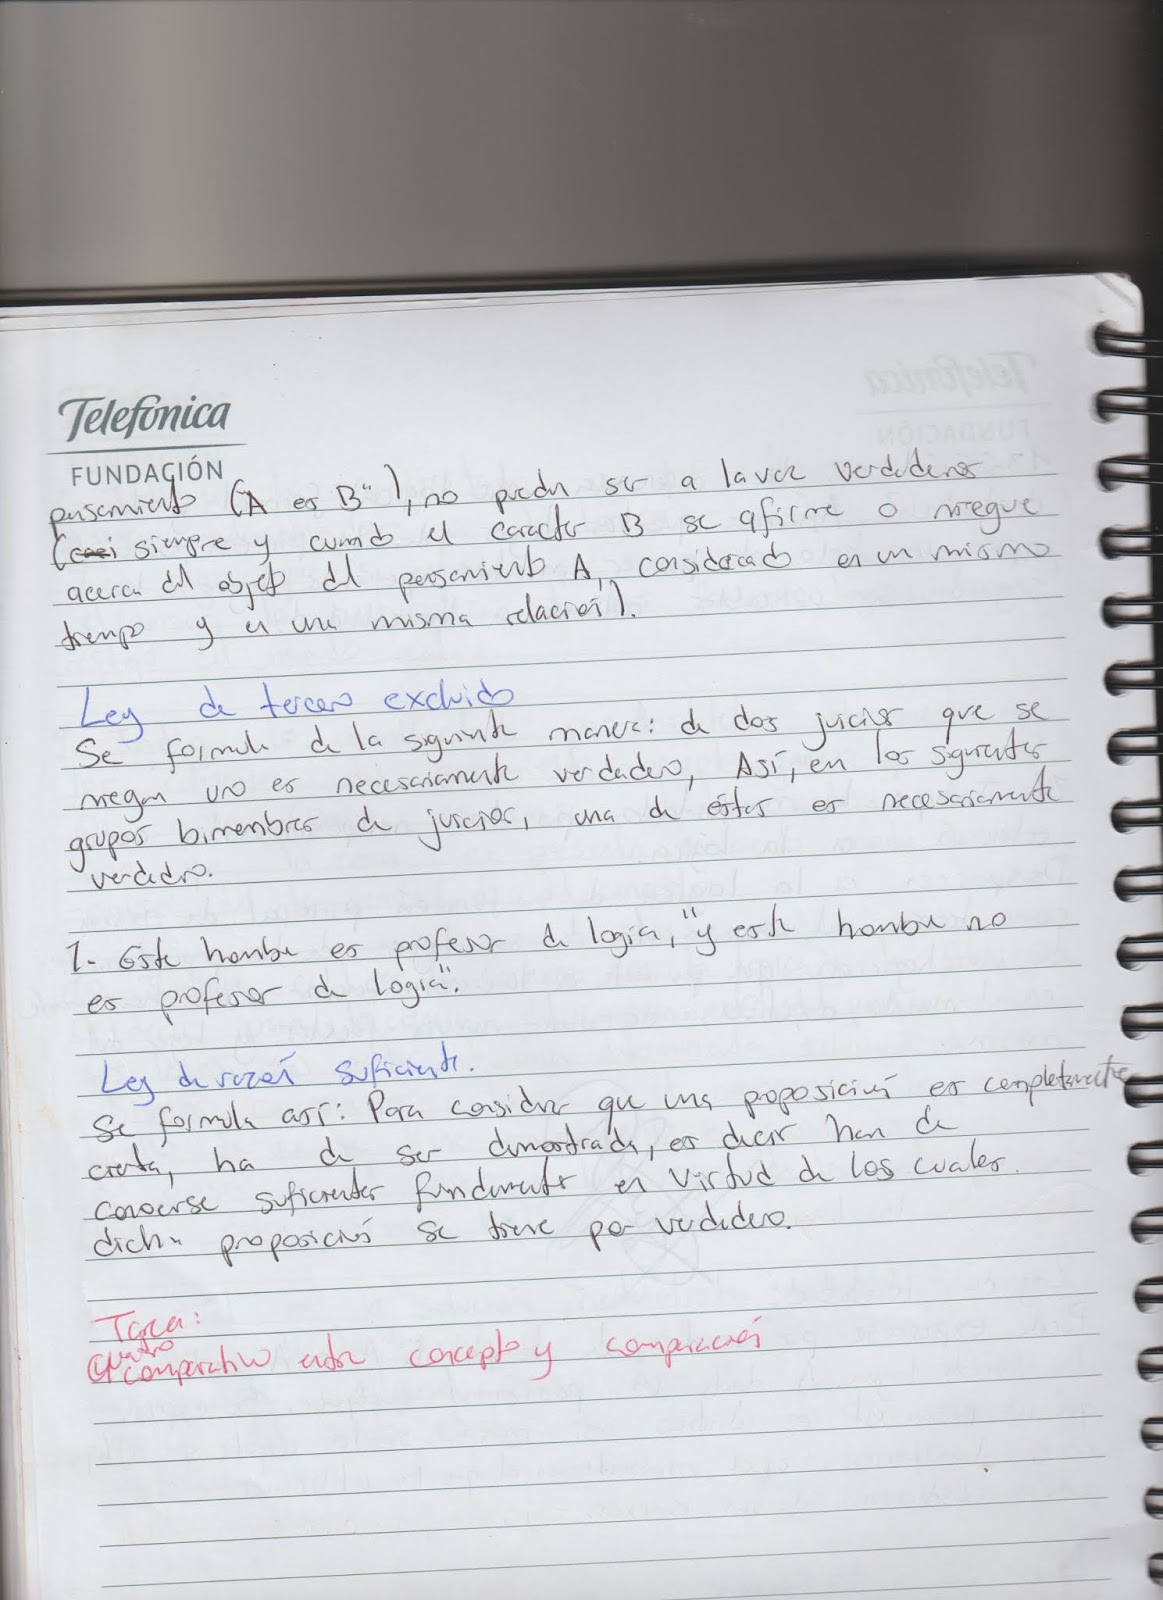 Telefónica
FUNDACIÓN
pensamiento ("A es B"), no pueden ser a la vez verdaderos
( siempre y cuando el caracter B se afirme o niegue
acerca del objeto del pensamiento A, considerado en un mismo
tiempo y en una misma relación).
Ley de tercero excluido
Se formula de la siguiente manera: de dos juicios que se
niegan uno es necesariamente verdadero, Así, en los siguientes
grupos bimembres de juicios, una de éstas es necesariamente
verdadero.
1- Este hombre es profesor de logica, "y este hombre no
es profesor de logica".
Ley de razón suficiente.
Se formula así: Para considerar que una proposición es completamente
cierta, ha de ser demostrada, es decir han de
conocerse suficientes fundamentos en virtud de los cuales.
dicha proposición se tiene por verdadero.
Tarea:
Cuadro
comparativo entre concepto y comparación